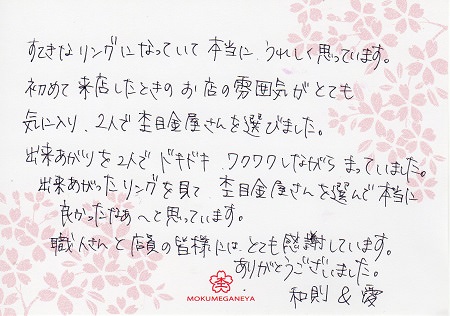 すてきなリングになっていて本当に、うれしく思っています。
初めて来店したときのお店の雰囲気がとても
気に入り、2人で杢目金屋さんを選びました。
出来あがりを2人でドキドキ ワクワクしながら まっていました。
出来あがったリングを見て 杢目金屋さんを選んで本当に
良かったなあ〜と思っています。
職人さんと店員の皆様には、とても感謝しています。
ありがとうございました。
和則 & 愛
杢
MOKUMEGANEYA